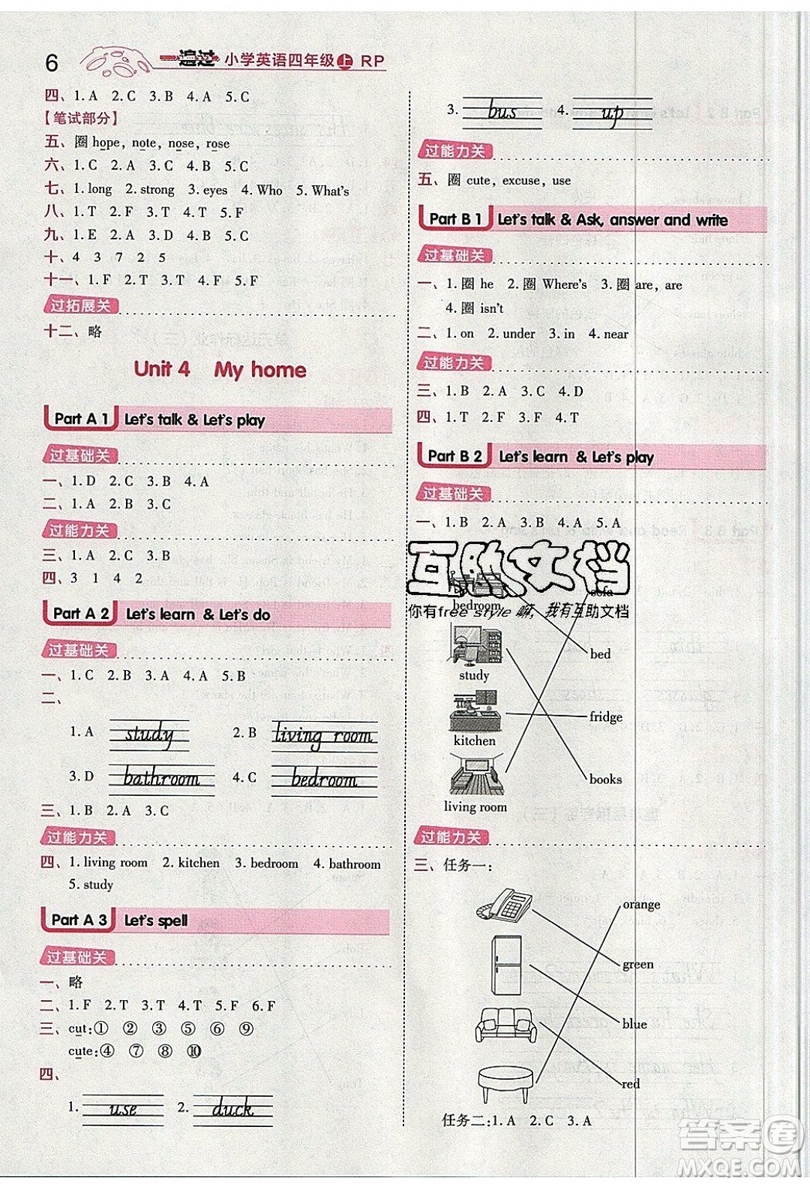 6 一遍过 小学英语四年级上 RP
四、1. A 2. C 3. B 4. A 5. C
【笔试部分】
五、圈 hope, note, nose, rose
六、1. C 2. C 3. A 4. B 5. C
七、1. long 2. strong 3. eyes 4. Who 5. What's
八、1. T 2. F 3. T 4. T 5. F
九、1. E 2. A 3. D 4. B 5. C
十、4 3 7 2 5
十一、1. F 2. F 3. T 4. T 5. F
过拓展关
十二、略
Unit 4 My home
Part A 1 Let's talk & Let's play
过基础关
一、1. D 2. C 3. B 4. A
二、1. B 2. A 3. C
过能力关
三、1. C 2. A 3. B
四、3 1 4 2
Part A 2 Let's learn & Let's do
过基础关
一、1. C 2. A 3. A 4. C 5. B
二、
1. A study 2. B living room
3. D bathroom 4. C bedroom
三、1. B 2. A 3. C
过能力关
四、1. living room 2. kitchen 3. bedroom 4. bathroom
5. study
Part A 3 Let's spell
过基础关
一、略
二、1. F 2. T 3. T 4. T 5. F 6. F
三、cut: ① ② ③ ⑤ ⑨
cute: ④ ⑥ ⑦ ⑧ ⑩
四、
1. use 2. duck
3. bus 4. up
过能力关
五、圈 cute, excuse, use
Part B 1 Let's talk & Ask, answer and write
过基础关
一、1. 圈 he 2. 圈 Where's 3. 圈 are, are
4. 圈 isn't
二、1. on 2. under 3. in 4. near
过能力关
三、1. B 2. A 3. C 4. D
四、1. T 2. F 3. F 4. T
Part B 2 Let's learn & Let's play
过基础关
一、1. B 2. A 3. B 4. A 5. A
互助文档
sofa
bedroom
你有free style 嘛，我有互助文档
bed
study
fridge
kitchen
books
living room
过能力关
三、任务一：
orange
green
blue
red
任务二：1. A 2. C 3. A
答案圈
MXQE.COM